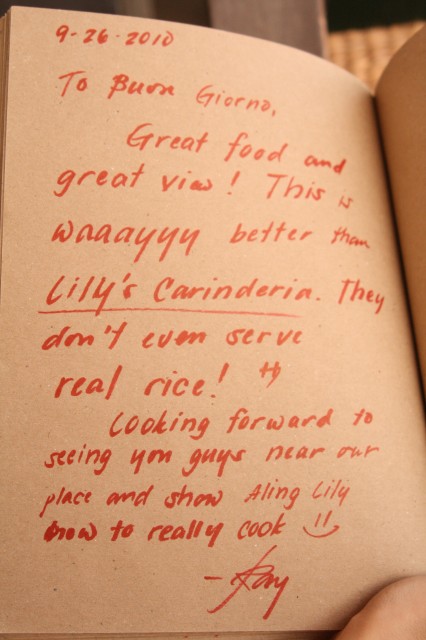 9-26-2010
To Buon Giorno,
Great food and
great view! This is
waaayyy better than
Lily's Carinderia. They
don't even serve
real rice! =)
Looking forward to
seeing you guys near our
place and show Aling Lily
how to really cook :)
- Ray